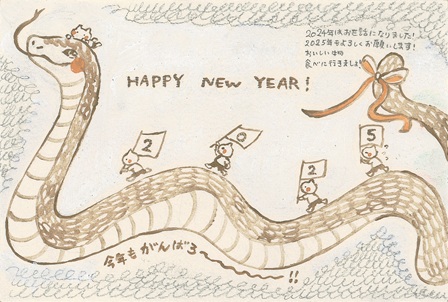 2024年はお世話になりました！
2025年もよろしくお願いします！
おいしい物
食べに行きましょ
HAPPY NEW YEAR!
2
0
2
5
今年もがんばろ〜!!